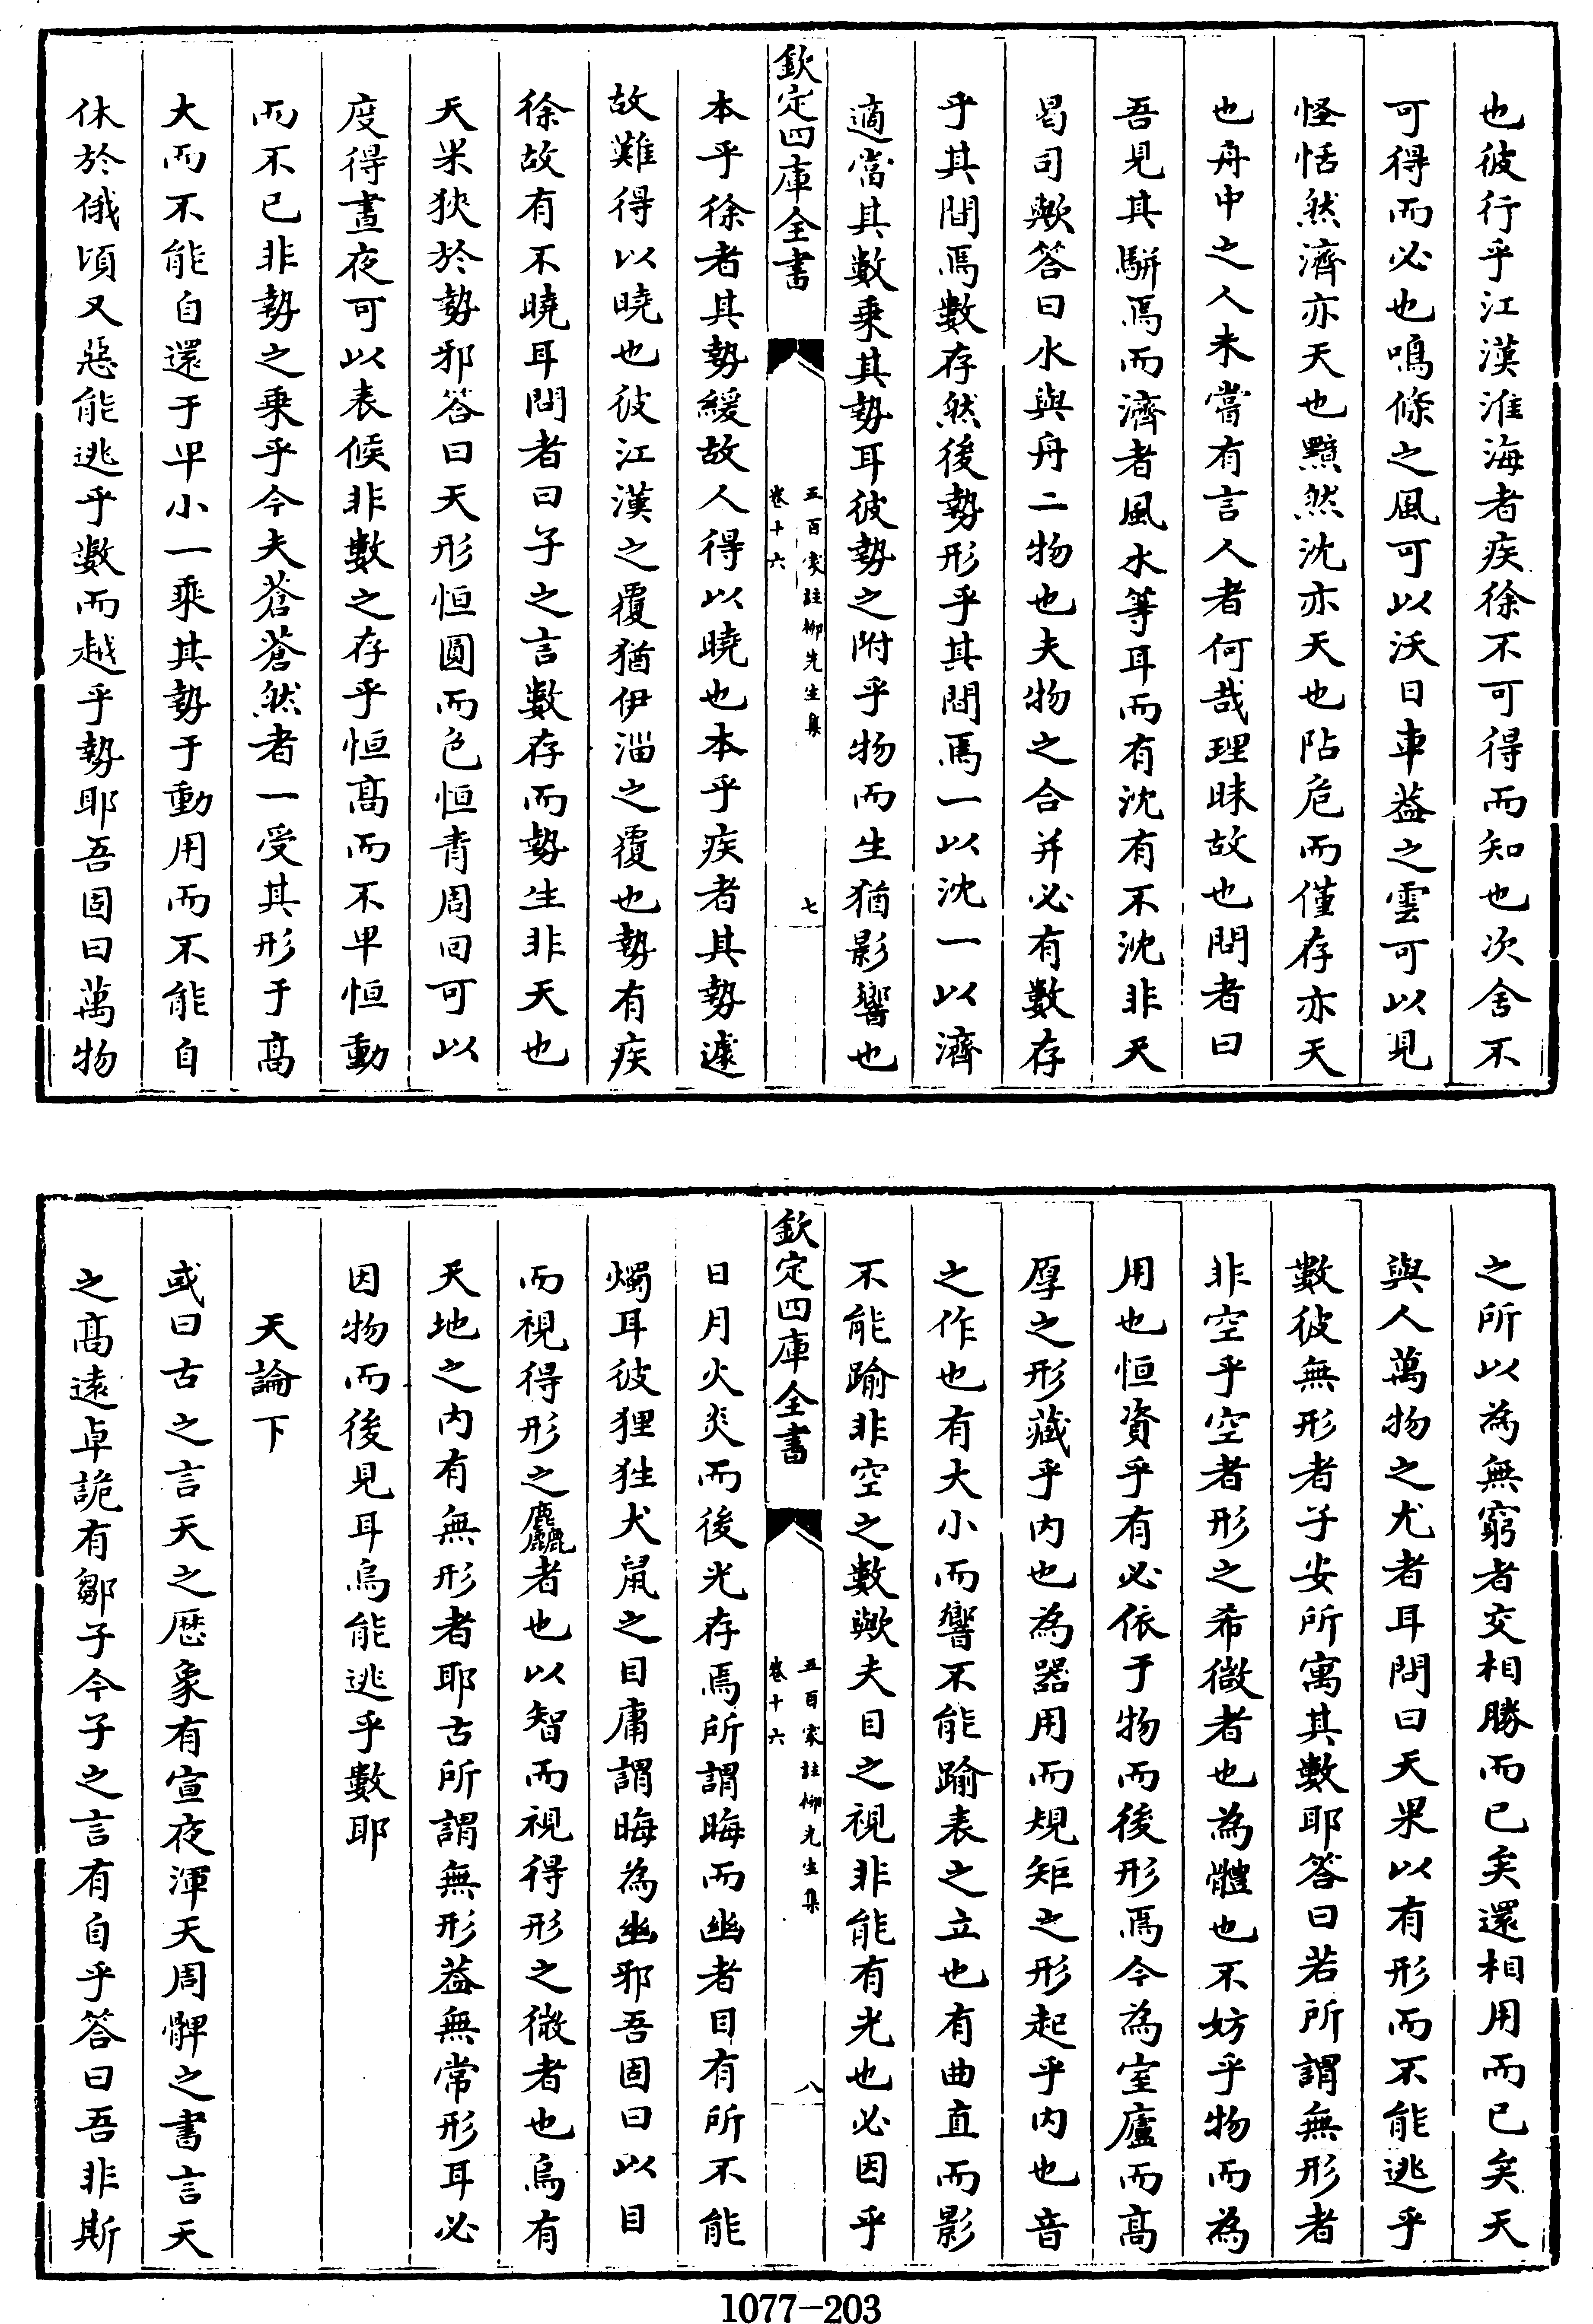 也彼行乎江漢淮海者疾徐不可得而知也次舍不
可得而必也鳴條之風可以沃日車葢之雲可以見
怪恬然濟亦天也黯然沈亦天也阽危而僅存亦天
也舟中之人未嘗有言人者何哉理昧故也問者曰
吾見其駢焉而濟者風水等耳而有沈有不沈非天
曷司歟答曰水與舟二物也夫物之合并必有數存
乎其間焉數存然後勢形乎其間焉一以沈一以濟
適當其數乗其勢耳彼勢之附乎物而生猶影響也
欽定四庫全書
五百家註柳先生集
卷十六
七
本乎徐者其勢緩故人得以曉也本乎疾者其勢遽
故難得以曉也彼江漢之覆猶伊淄之覆也勢有疾
徐故有不曉耳問者曰子之言數存而勢生非天也
天果狹於勢邪答曰天形恒圓而色恒青周回可以
度得晝夜可以表候非數之存乎恒髙而不卑恒動
而不已非勢之乗乎今夫蒼蒼然者一受其形于髙
大而不能自還于卑小一乘其勢于動用而不能自
休於俄頃又惡能逃乎數而越乎勢耶吾固曰萬物
之所以為無窮者交相勝而已矣還相用而已矣天
與人萬物之尤者耳問曰天果以有形而不能逃乎
數彼無形者子安所寓其數耶答曰若所謂無形者
非空乎空者形之希微者也為體也不妨乎物而為
用也恒資乎有必依于物而後形焉今為室廬而髙
厚之形藏乎内也為器用而規矩之形起乎内也音
之作也有大小而響不能踰表之立也有曲直而影
不能踰非空之數歟夫目之視非能有光也必因乎
欽定四庫全書
五百家註柳先生集
卷十六
八
日月火炎而後光存焉所謂晦而幽者目有所不能
燭耳彼狸狌犬鼠之目庸謂晦為幽邪吾固曰以目
而視得形之麤者也以智而視得形之微者也烏有
天地之内有無形者耶古所謂無形葢無常形耳必
因物而後見耳烏能逃乎數耶
天論下
或曰古之言天之厯象有宣夜渾天周髀之書言天
之髙逺卓詭有鄒子今子之言有自乎答曰吾非斯
1077-203